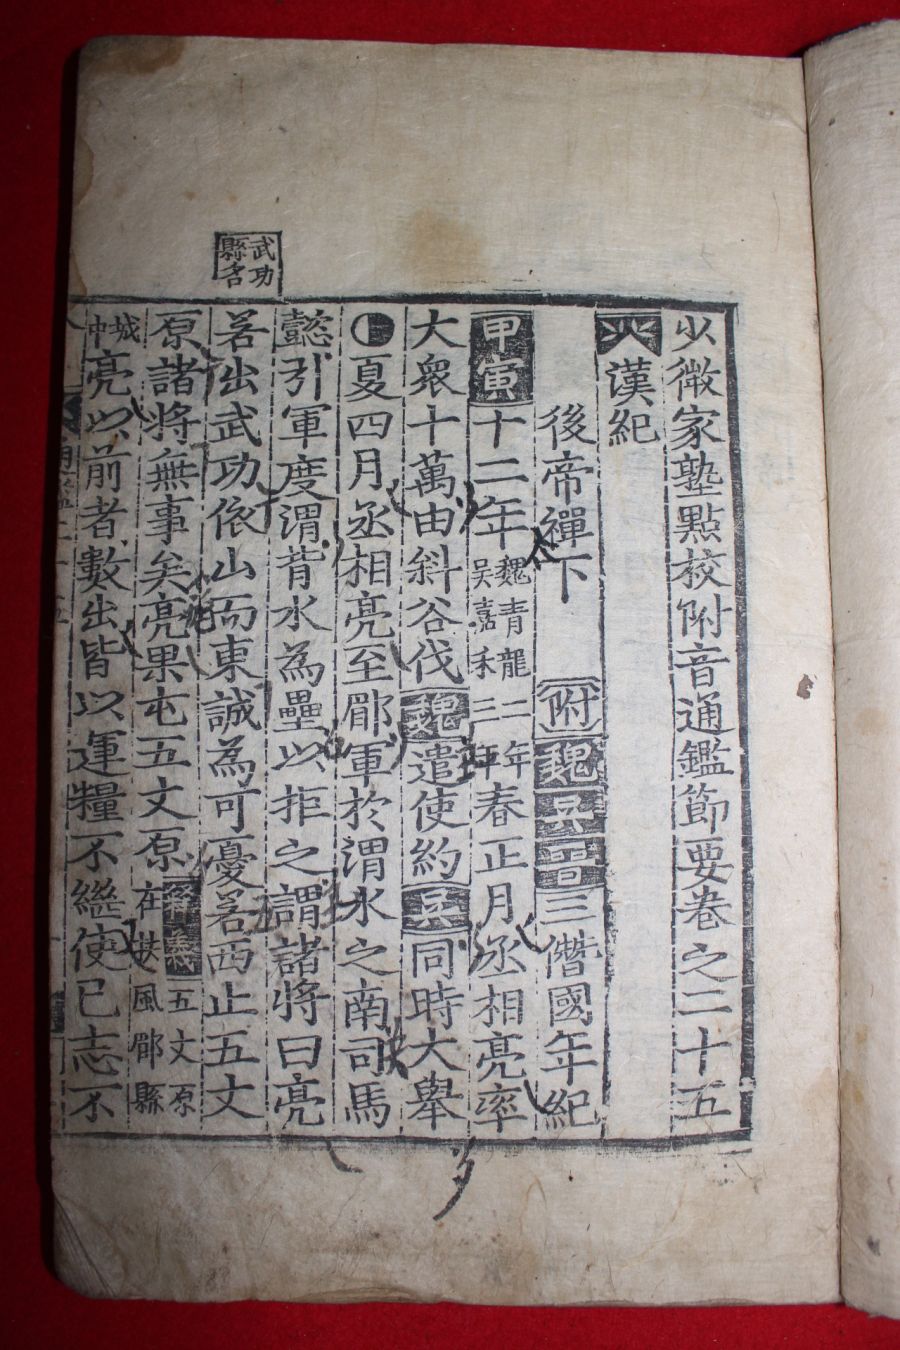 武功
縣名
少微家塾點校附音通鑑節要卷之二十五
漢紀
後帝禪下 附魏吳二僭國年紀
甲寅十二年魏青龍二年吳嘉禾三年春正月丞相亮率
大衆十萬由斜谷伐魏遣使約吳同時大舉
夏四月丞相亮至郿軍於渭水之南司馬
懿引軍度渭背水為壘以拒之謂諸將曰亮
若出武功依山而東誠為可憂若西止五文
原諸將無事矣亮果屯五文原釋義五文原在扶風郿縣
城中亮以前者數出皆以運糧不繼使已志不